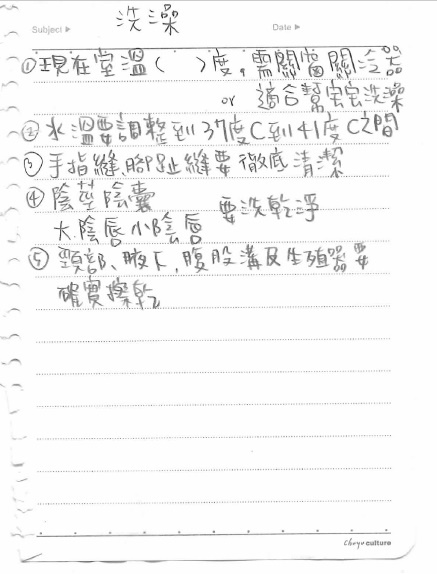 洗澡
Subject ▶ Date ▶
①現在室溫( )度,需關窗關冷器
or 適合幫宝宝洗澡
②水溫要調整到37度C到41度C之間
③手指縫、腳趾縫要徹底清潔
④陰莖陰囊 要洗乾淨
大陰唇小陰唇
⑤頸部、腋下、腹股溝及生殖器要
確實擦乾
Chryo culture